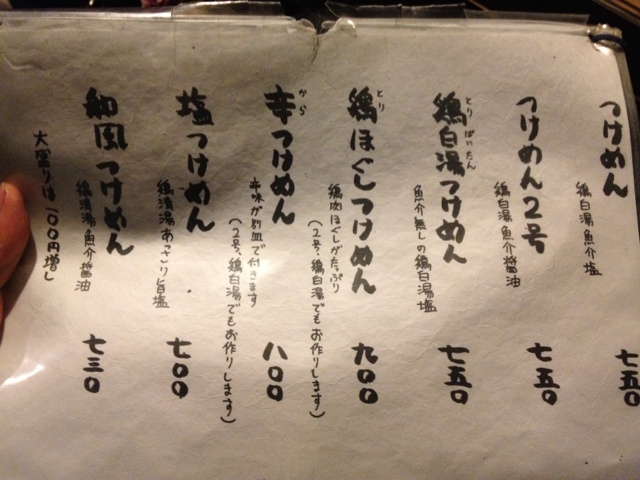 つけめん
鶏白湯魚介塩
七五〇
つけめん2号
鶏白湯魚介醤油
七五〇
鶏白湯つけめん
とりぱいたん
魚介無しの鶏白湯塩
七五〇
鶏ほぐしつけめん
とり
鶏肉ほぐしがたっぷり
(2号、鶏白湯でもお作りします)
九〇〇
辛つけめん
から
辛味が別皿で付きます
(2号、鶏白湯でもお作りします)
八〇〇
塩つけめん
鶏清湯あさり旨塩
七〇〇
和風つけめん
鶏清湯魚介醤油
七三〇
大盛りは一〇〇円増し